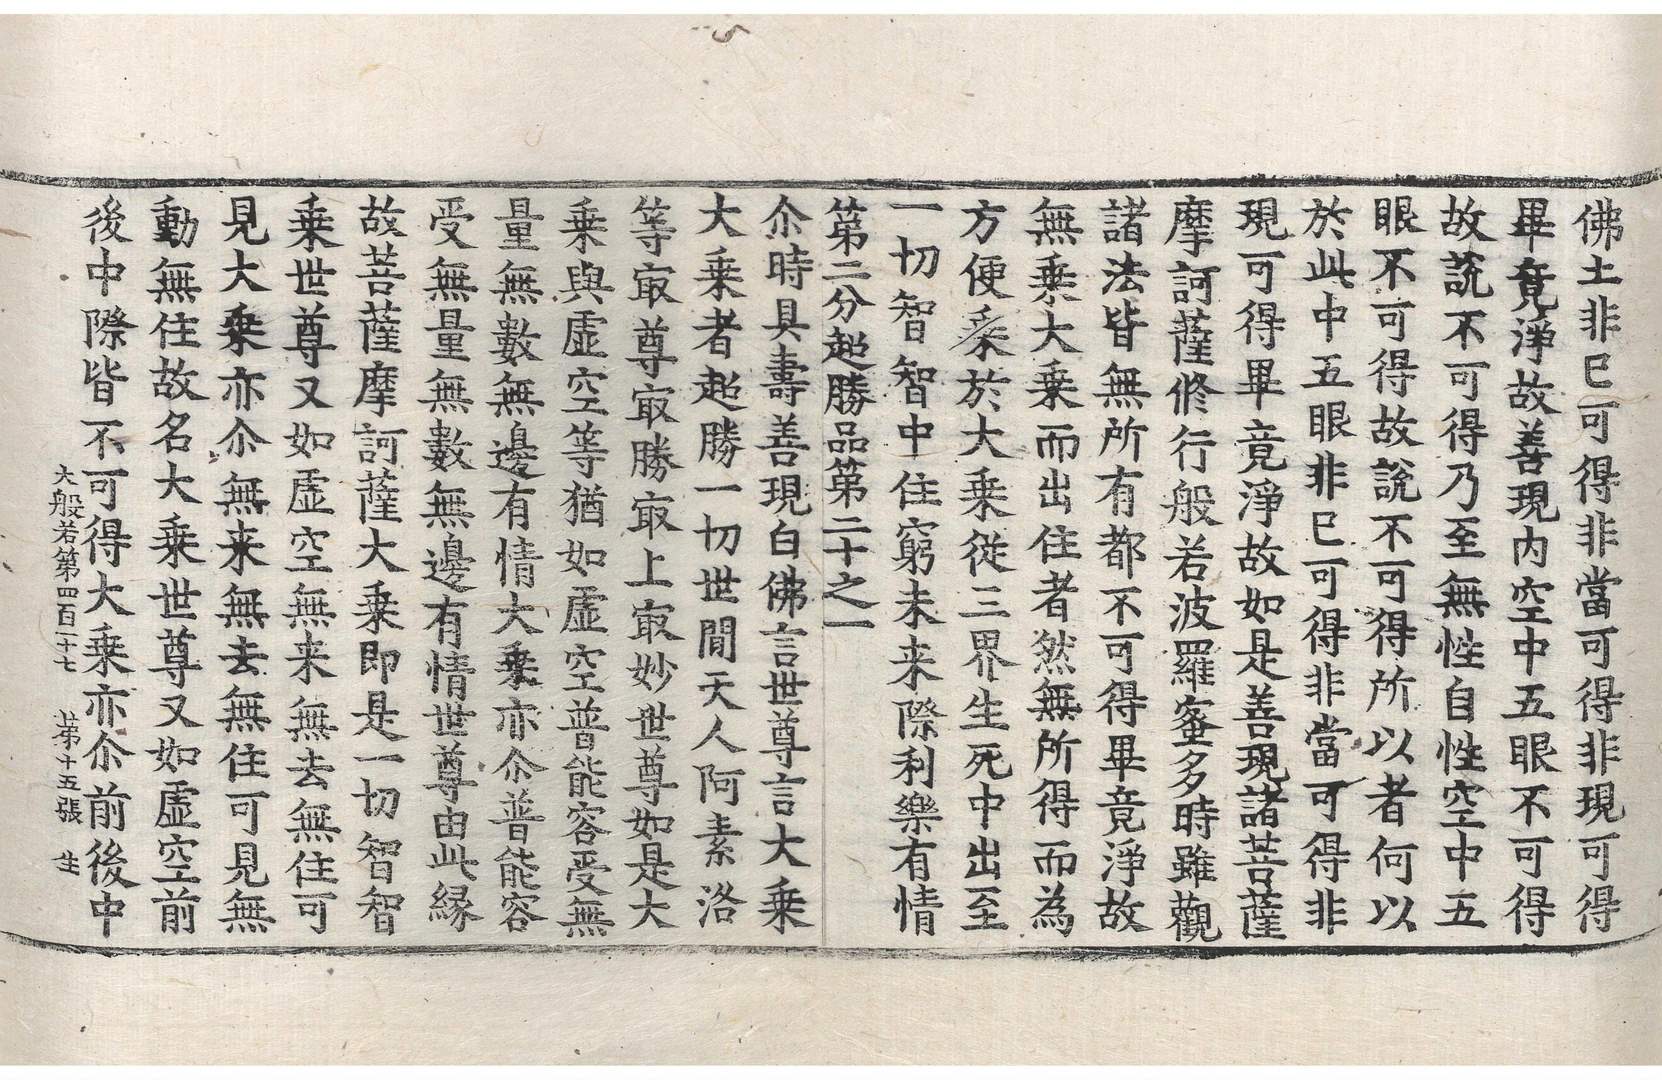 佛土非已可得非當可得非現可得
畢竟淨故善現内空中五眼不可得
故說不可得乃至無性自性空中五
眼不可得故說不可得所以者何以
於此中五眼非已可得非當可得非
現可得畢竟淨故如是善現諸菩薩
摩訶薩修行般若波羅蜜多時雖觀
諸法皆無所有都不可得畢竟淨故
無乘大乘而出住者然無所得而為
方便乘於大乘從三界生死中出至
一切智智中住窮未来際利樂有情
第二分超勝品第二十之一
尒時具壽善現白佛言世尊言大乘
大乘者超勝一切世間天人阿素洛
等㝡尊㝡勝㝡上㝡妙世尊如是大
乘與虛空等猶如虛空普能容受無
量無數無邊有情大乘亦尒普能容
受無量無數無邊有情世尊由此縁
故菩薩摩訶薩大乘即是一切智智
乘世尊又如虛空無来無去無住可
見大乘亦尒無来無去無住可見無
動無住故名大乘世尊又如虛空前
後中際皆不可得大乘亦尒前後中
大般若第四百一十七 苐十五張 生